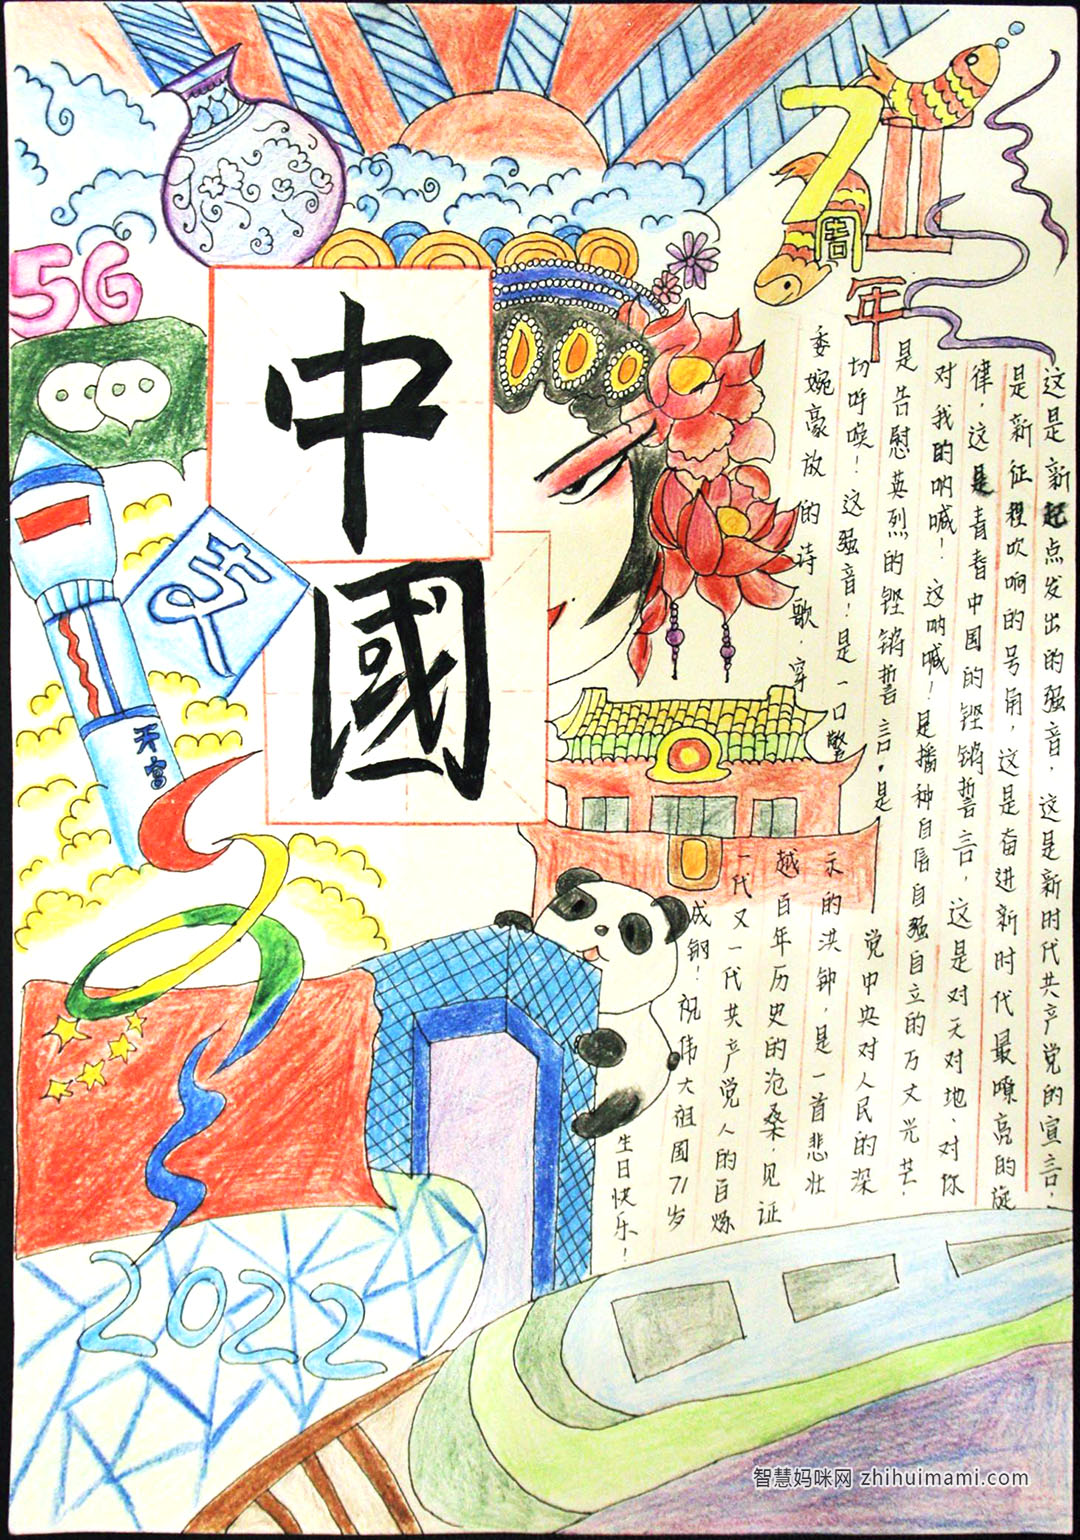 71
周
年
5G
中
國
支
天宫
2022
这是新起点发出的强音，这是新时代共产党的宣言，
是新征程吹响的号角，这是奋进新时代最嘹亮的旋
律，这是青春中国的铿锵誓言，这是对天对地、对你
对我的呐喊！这呐喊！是播种自信自强自立的万丈光芒！
是告慰英烈的铿锵誓言。是
党中央对人民的深
切呼唤！这强音！是一口警
示的洪钟，是一首悲壮
委婉豪放的诗歌，穿
越百年历史的沧桑，见证
一代又一代共产党人的百炼
成钢！祝伟大祖国71岁
生日快乐！
智慧妈咪网 zhihuimami.com